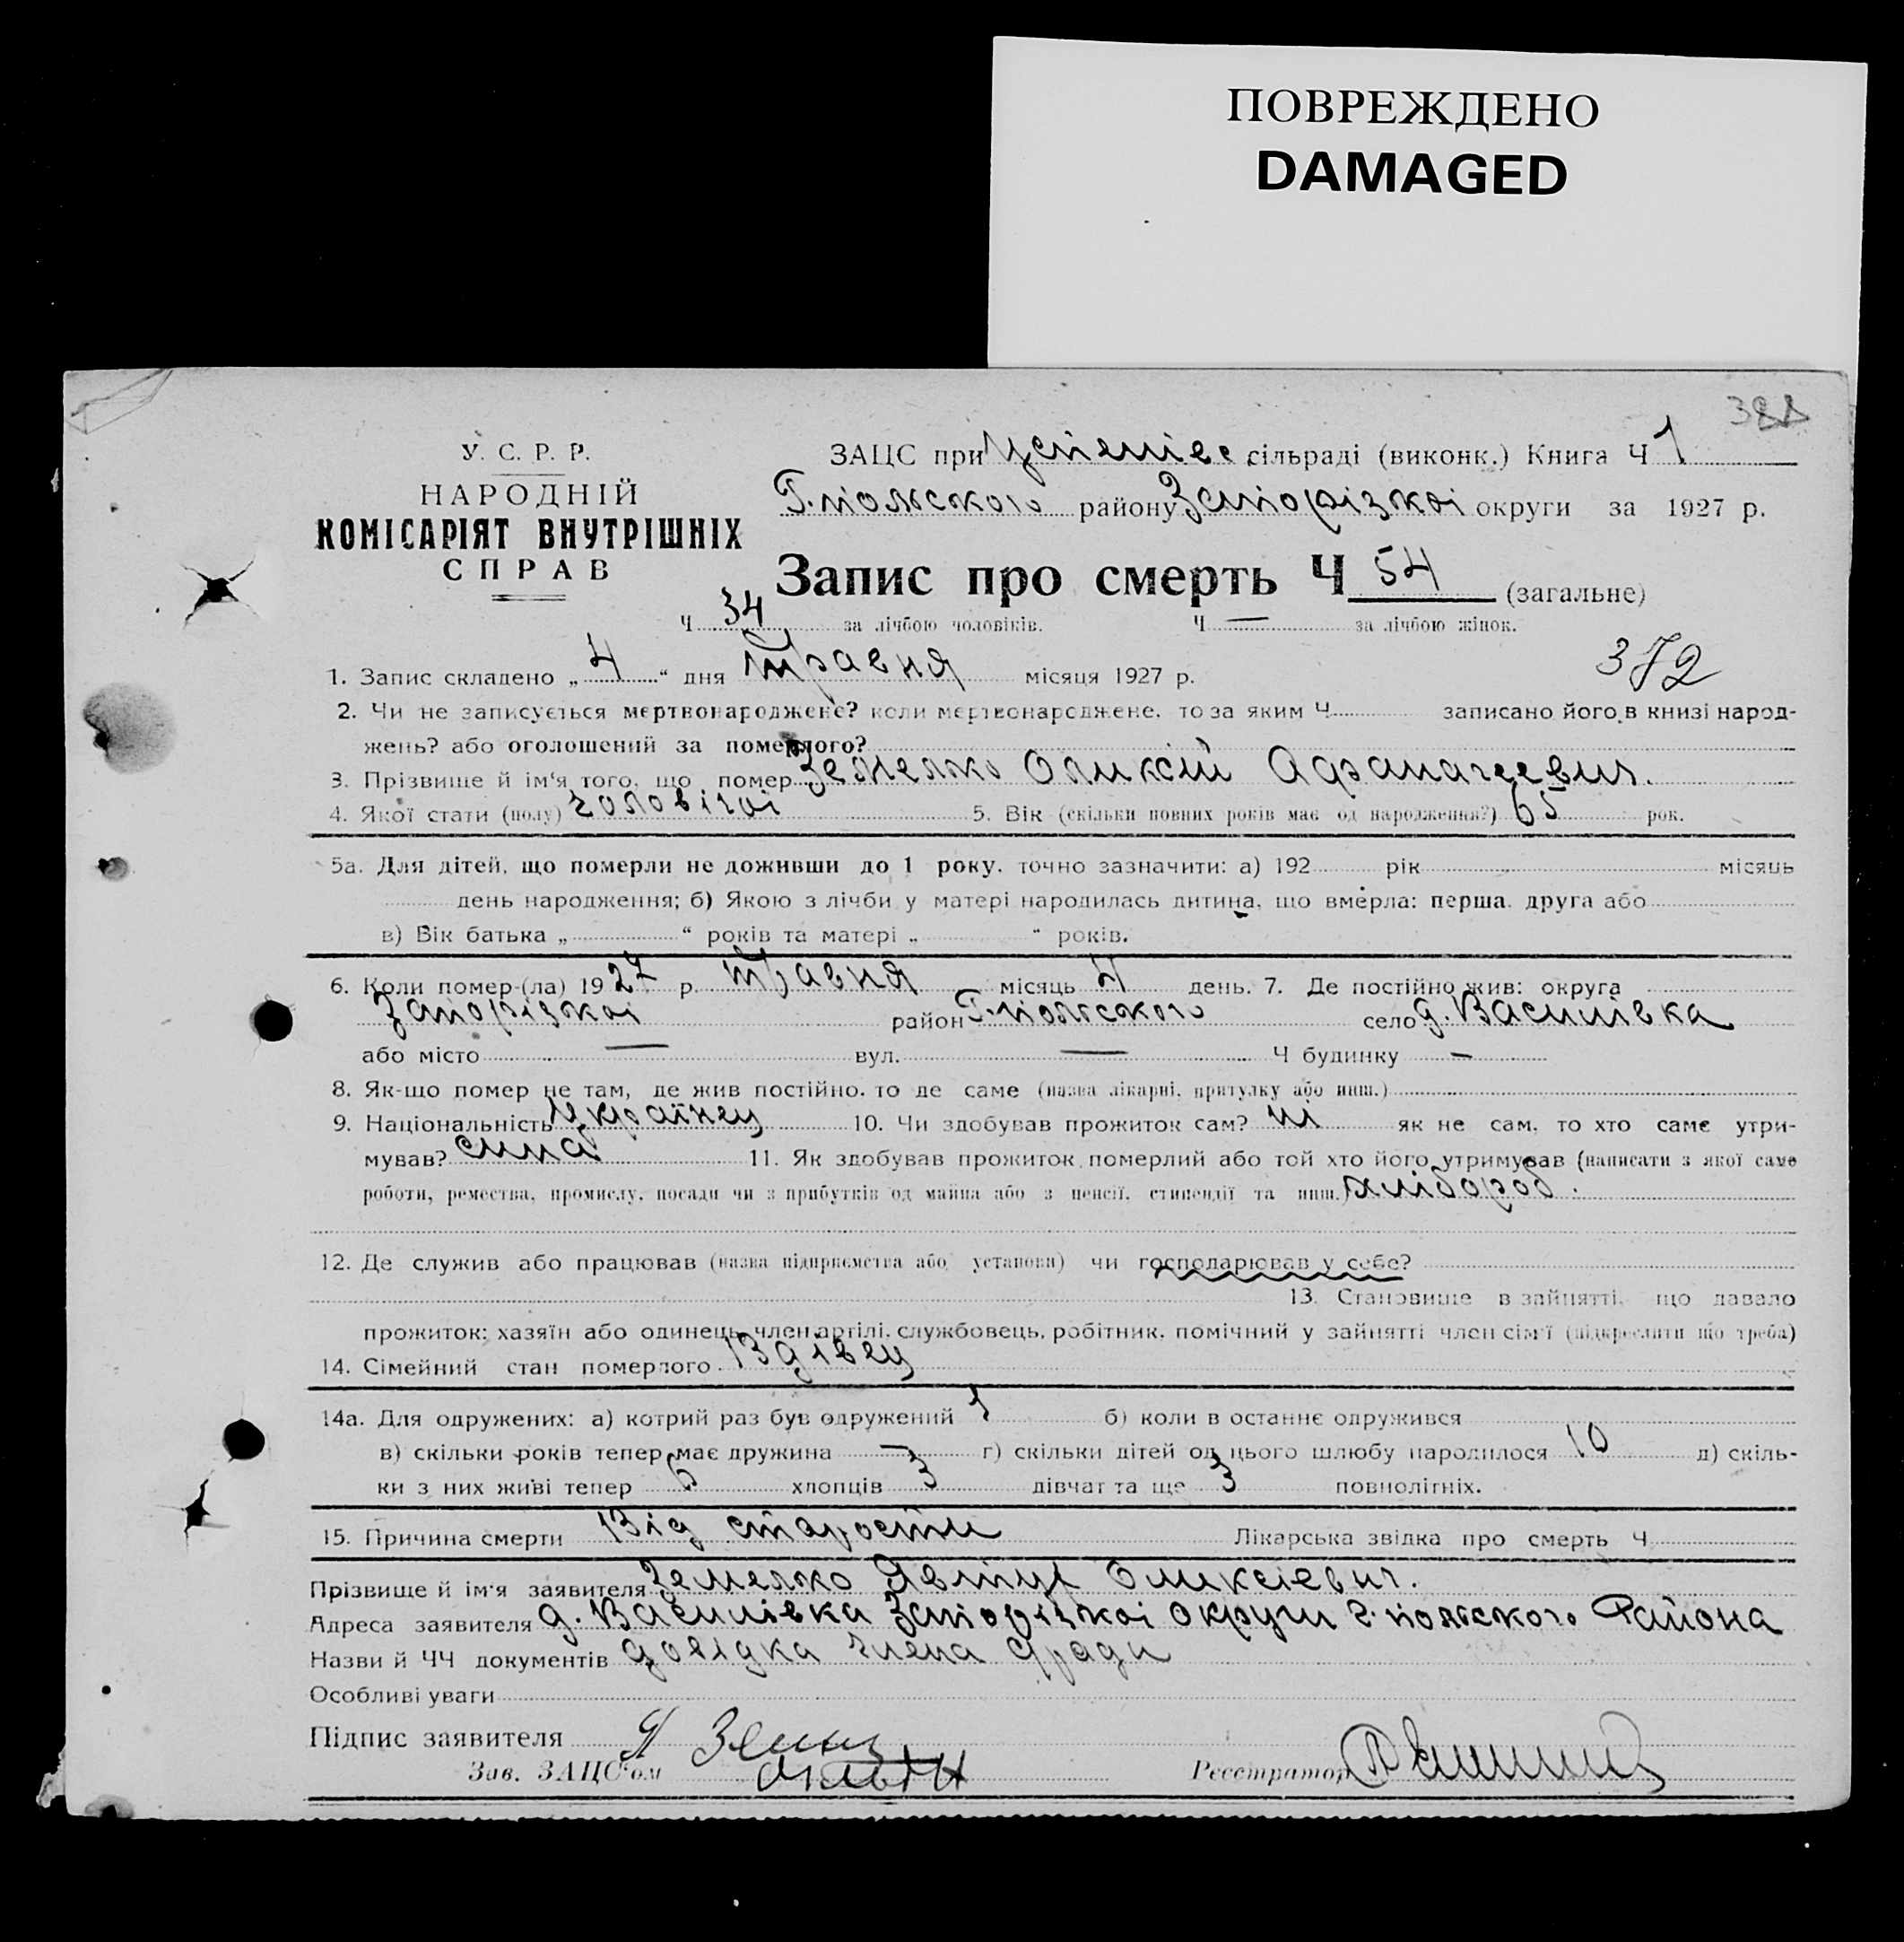 ПОВРЕЖДЕНО
DAMAGED
У. С. Р. Р.
НАРОДНІЙ
КОМІСАРІЯТ ВНУТРІШНІХ
СПРАВ
ЗАЦС при Успенівс. сільраді (виконк.) Книга Ч 1
Г.польского району Запорізкої округи за 1927 р.
Запис про смерть Ч 54 (загальне)
Ч 34 за лічбою чоловіків. Ч — за лічбою жінок.
372
1. Запис складено „ 4 “ дня Травня місяця 1927 р.
2. Чи не записується мертвонароджене? коли мертвонароджене, то за яким Ч записано його в книзі народ-
жень? або оголошений за померлого?
3. Прізвище й ім‘я того, що помер
4. Якої стати (полу) чоловічої 5. Вік (скільки повних років має од народження?) 65 рок.
5а. Для дітей, що померли не доживши до 1 року, точно зазначити: а) 192 рік місяць
день народження; б) Якою з лічби у матері народилась дитина, що вмерла: перша, друга або
в) Вік батька „ “ років та матері „ “ років.
6. Коли помер-(ла) 1927 р. Травня місяць 4 день. 7. Де постійно жив: округа
Запорізкої район Г.польского село д. Василівка
або місто — вул. — Ч будинку —
8. Як-що помер не там, де жив постійно, то де саме (назва лікарні, притулку або инш.)
9. Національність Українец 10. Чи здобував прожиток сам? ні як не сам, то хто саме утри-
мував? сина 11. Як здобував прожиток померлий або той хто його утримував (написати з якої саме
роботи, ремества, промислу, посади чи з прибутків од майна або з пенсії, стипендії та инш.) хлібороб.
12. Де служив або працював (назва підприємства або установи) чи господарював у себе?
13. Становище в зайнятті, що давало
прожиток: хазяїн або одинець, член артілі, службовець, робітник, помічний у зайнятті член сім‘ї (підкреслити що треба)
14. Сімейний стан померлого Вдівец
14а. Для одружених: а) котрий раз був одружений 1 б) коли в останнє одружився
в) скільки років тепер має дружина — г) скільки дітей од цього шлюбу народилося 10 д) скіль-
ки з них живі тепер 6 хлопців 3 дівчат та ще 3 повнолітніх.
15. Причина смерти Від старости Лікарська звідка про смерть Ч
Прізвище й ім‘я заявителя
Адреса заявителя д. Василівка Запорізкої округи Г.польского Района
Назви й ЧЧ документів довідка члена с/ради
Особливі уваги
Підпис заявителя
Зав. ЗАЦС‘ом
Реєстратор